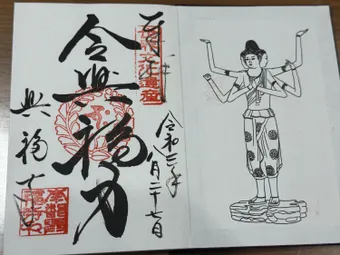 奉拝
令和二年
八月二十七日
令興福力
興福寺